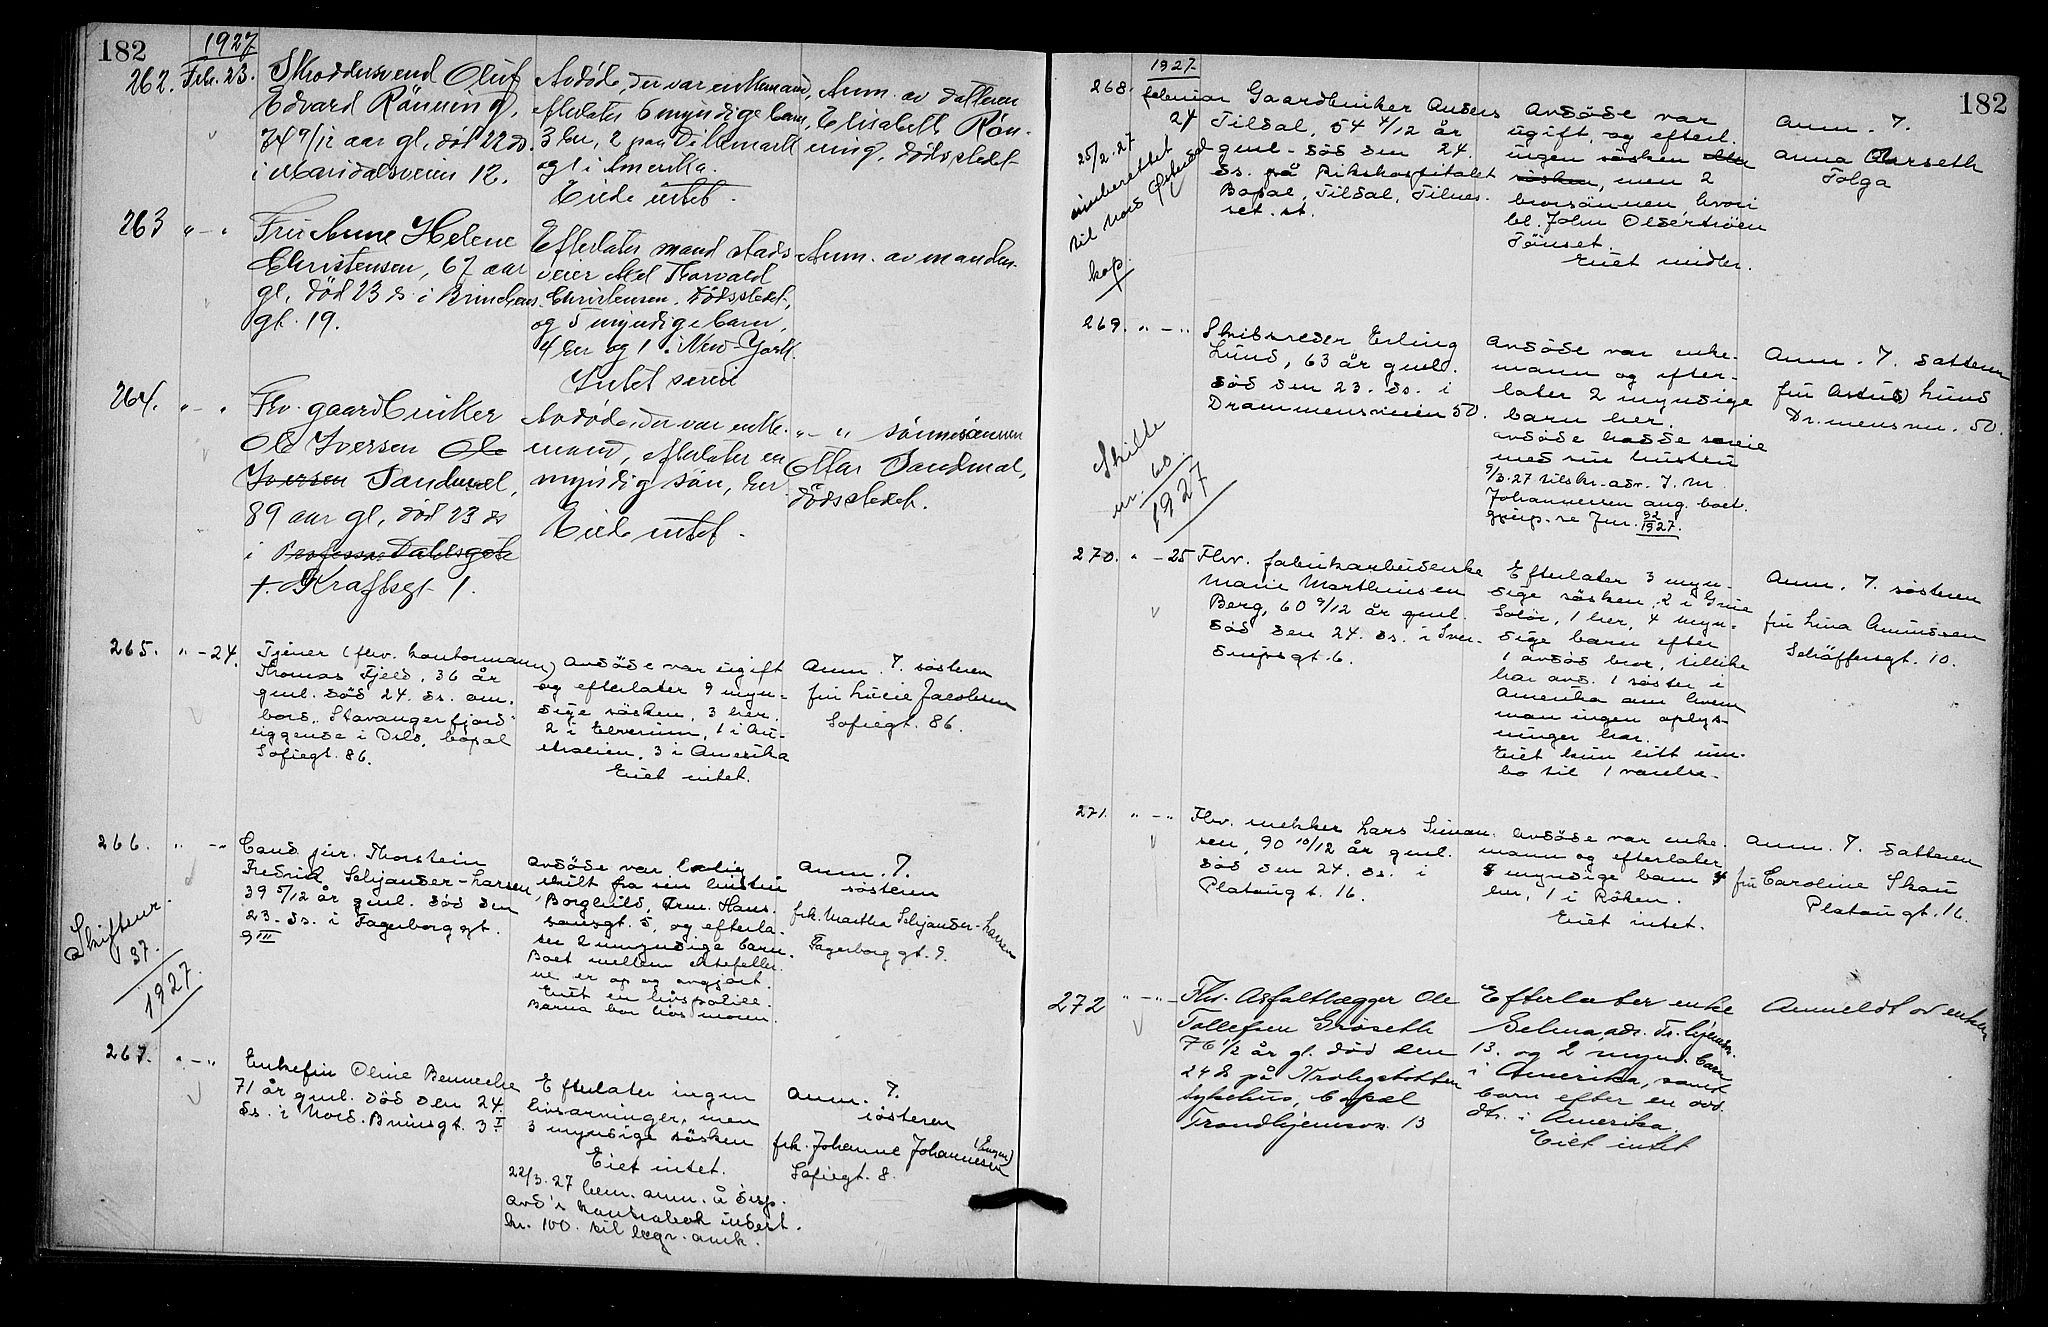 182
1927
262. Feb. 23.
Skræddersvend Oluf
Edvard Rønning,
74 9/12 aar gl, død 22 ds.
i Maridalsveien 12.
Avdøde, der var enkemand,
efterlater 6 myndige barn,
3 her, 2 paa Dikemark
og 1 i Amerika.
Eiede intet.
Anm. av datteren
Elisabeth Røn-
ning, dødsstedet
263 " - "
Fru Anne Helene
Christensen, 67 aar
gl, død 23 ds i Brinchens
gt. 19.
Efterlater mand stads
veier Axel Thorvald
Christensen, dødsstedet,
og 5 myndige barn,
4 her og 1 i New-York.
Intet særeie
Anm. av manden.
264. " - "
Fhv. gaardbruker
Ole Iversen Ole
Iversen Sandmæl,
89 aar gl, død 23 ds
i Professor Dahlsgate
+. Kraftsgt 1.
Avdøde, der var enke-
mand, efterlater en
myndig søn, her.
Eiede intet.
" - " sønnesønnen
Ottar Sandmæl,
dødsstedet.
265. " - 24.
Tjener (fhv. kontormann)
Thomas Fjeld, 36 år
gml. død 24. ds. om-
bord "Stavangerfjord"
liggende i Oslo, bopæl
Sofiegt. 86.
Avdøde var ugift
og efterlater 9 myn-
dige søsken, 3 her.
2 i Elverum, 1 i Au-
stralien, 3 i Amerika
Eiet intet.
Anm. 7. søsteren
fru Lucie Jacobsen
Sofiegt. 86.
266. " - "
Skiftenr.
37.
1927.
Cand. jur. Thorstein
Fredrid Schjander-Larsen
39 5/12 år gml. død den
23. ds. i Fagerborggt.
9 III
Avdøde var lovlig
skilt fra sin hustru
Borghild, Frm. Hans.
sensgt. 5, og efterla-
ter 2 umyndige barn.
Boet mellem ektefeller-
ne er op og avgjort.
Eiet en livspolise.
Barna bor hos moren.
Anm. 7.
søsteren
frk. Martha Schjander-Larsen
Fagerborggt. 9.
267. " - "
Enkefru Oline Bennecke
71 år gml. død den 24.
ds. i Nord. Brunsgt. 3 I
Efterlater ingen
livsarvinger, men
3 myndige søsken
Eiet intet.
22/3.27 bem. anm. å disp.
avd's kontrabok indest.
kr. 100. til begr. omk.
Anm. 7.
søsteren
frk. Johanne Johannesen
Sofiegt. 8.
182
1927.
268. februar
24
25/2.27
innberettet
til Nord Østerdal
kop.
Gaardbruker Anders
Tildal, 54 4/12 år
gml. død den 24.
ds. på Rikshospitalet
Bopæl, Tildal, Tilnes-
set. st.
Avdøde var
ugift, og efterl.
ingen søsken eller
søsken, men 2
brorsønner hvori
bl. John Olsertrøen
Tønset.
Eiet midler.
Anm. 7.
Anna Aarseth
Tolga
269. " - "
Skifte
nr. 60.
1927
Skibsreder Erling
Lund, 63 år gml.
død den 23. ds. i
Drammensveien 50.
Avdøde var enke-
mann og efter-
later 2 myndige
barn her.
Avdøde hadde særeie
med sin hustru
9/3.27 tilskr. adv. J. M.
Johannesen ang. boet.
gjenp. se Jnr. 92
1927.
Anm. 7. datteren
fru Astrid Lund
Dr.mensvn. 50.
270. " - 25
Fhv. fabrikarbeiderske
Marie Marthinsen
Berg, 60 9/12 år gml.
død den 24. ds. i Sver-
drupsgt. 6.
Efterlater 3 myn-
dige søsken, 2 i Grue
Solør, 1 her, 4 myn-
dige barn efter
1 avdød bror, tillike
har avd. 1 søster i
Amerika om hvem
man ingen oplys-
ninger har.
Eiet kun litt inn-
bo til 1 værelse.
Anm. 7. søsteren
fru Lina Amundsen
Schäffersgt. 10.
271. " - "
Fhv. mekker Lars Simon-
sen, 90 10/12 år gml.
død den 24. ds. i
Platougt. 16.
Avdøde var enke-
mann og efterlater
5 myndige barn 4
her, 1 i Røken.
Eiet intet.
Anm. 7. datteren
fru Caroline Skau
Platougt. 16.
272 " - " -
Fhv. Asfaltlægger Ole
Tollefsen Grøseth
76 1/2 år gl. død den
24 ds på Krohgstøtten
sykehus, bopæl
Trondhjemsvn. 13
Efterlater enke
Selma, adr. Tr.hjemsvn.
13. og 2 mynd. barn
i Amerika, samt
barn efter en avd.
dtr. i Amerika.
Eiet intet
Anmeldt av enken